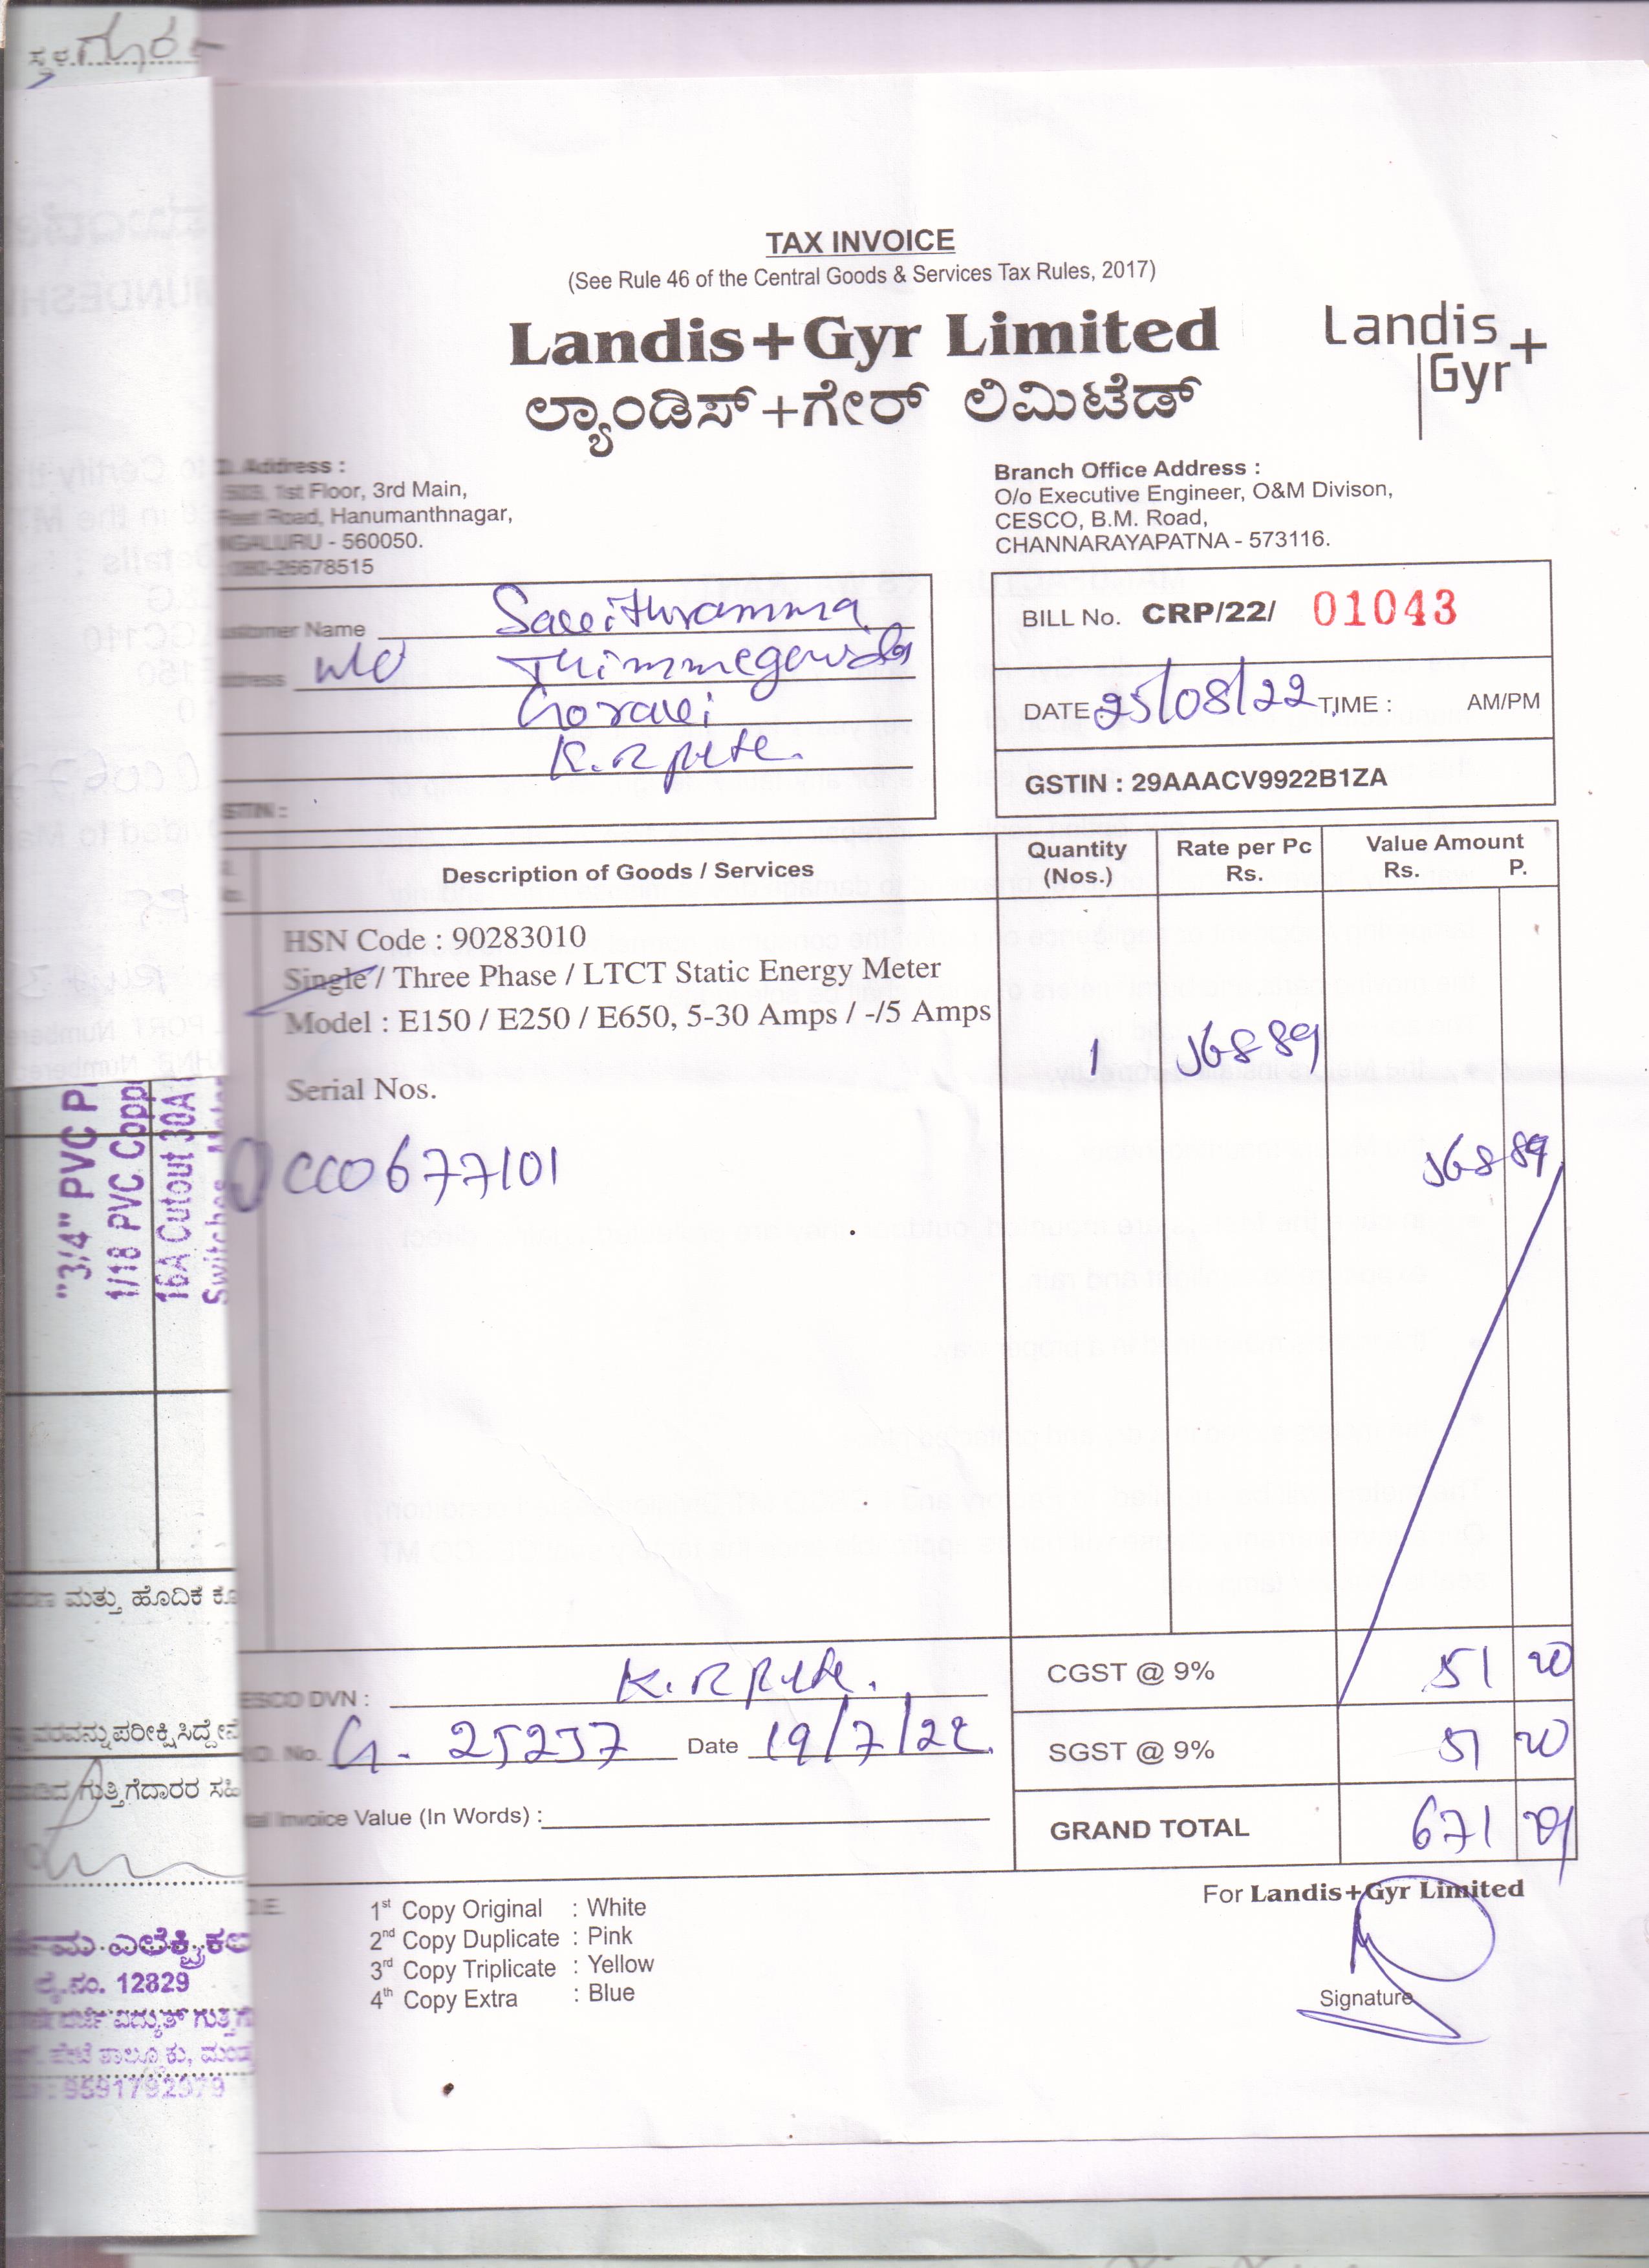 TAX INVOICE
(See Rule 46 of the Central Goods & Services Tax Rules, 2017)
Landis+Gyr Limited
ಲ್ಯಾಂಡಿಸ್+ಗೇರ್ ಲಿಮಿಟೆಡ್
Landis
Gyr+
Address :
1st Floor, 3rd Main,
Road, Hanumanthnagar,
- 560050.
080-26678515
Branch Office Address :
O/o Executive Engineer, O&M Divison,
CESCO, B.M. Road,
CHANNARAYAPATNA - 573116.
Name Savithramma
Thimmegowda
Goravi
K.R pete.
BILL No. CRP/22/ 01043
DATE 25/08/22 TIME : AM/PM
GSTIN : 29AAACV9922B1ZA
Description of Goods / Services
Quantity (Nos.)
Rate per Pc Rs.
Value Amount Rs. P.
HSN Code : 90283010
Single / Three Phase / LTCT Static Energy Meter
Model : E150 / E250 / E650, 5-30 Amps / -/5 Amps
1 568 89
Serial Nos.
677101
568 89
DVN : K.R pete.
CGST @ 9% 51 20
No. G. 25237 Date 19/7/22
SGST @ 9% 51 20
Invoice Value (In Words) :
GRAND TOTAL 671 29
For Landis+Gyr Limited
1st Copy Original : White
2nd Copy Duplicate : Pink
3rd Copy Triplicate : Yellow
4th Copy Extra : Blue
Signature
"3/4" PVC P
1/18 PVC Copp
16A Cutout 30A
Switches
ಮತ್ತು ಹೊದಿಕೆ
ಗುತ್ತಿಗೆದಾರರ ಸಹಿ
ಎಲೆಕ್ಟ್ರಿಕಲ
ಲೈ.ನಂ. 12829
ವಿದ್ಯುತ್